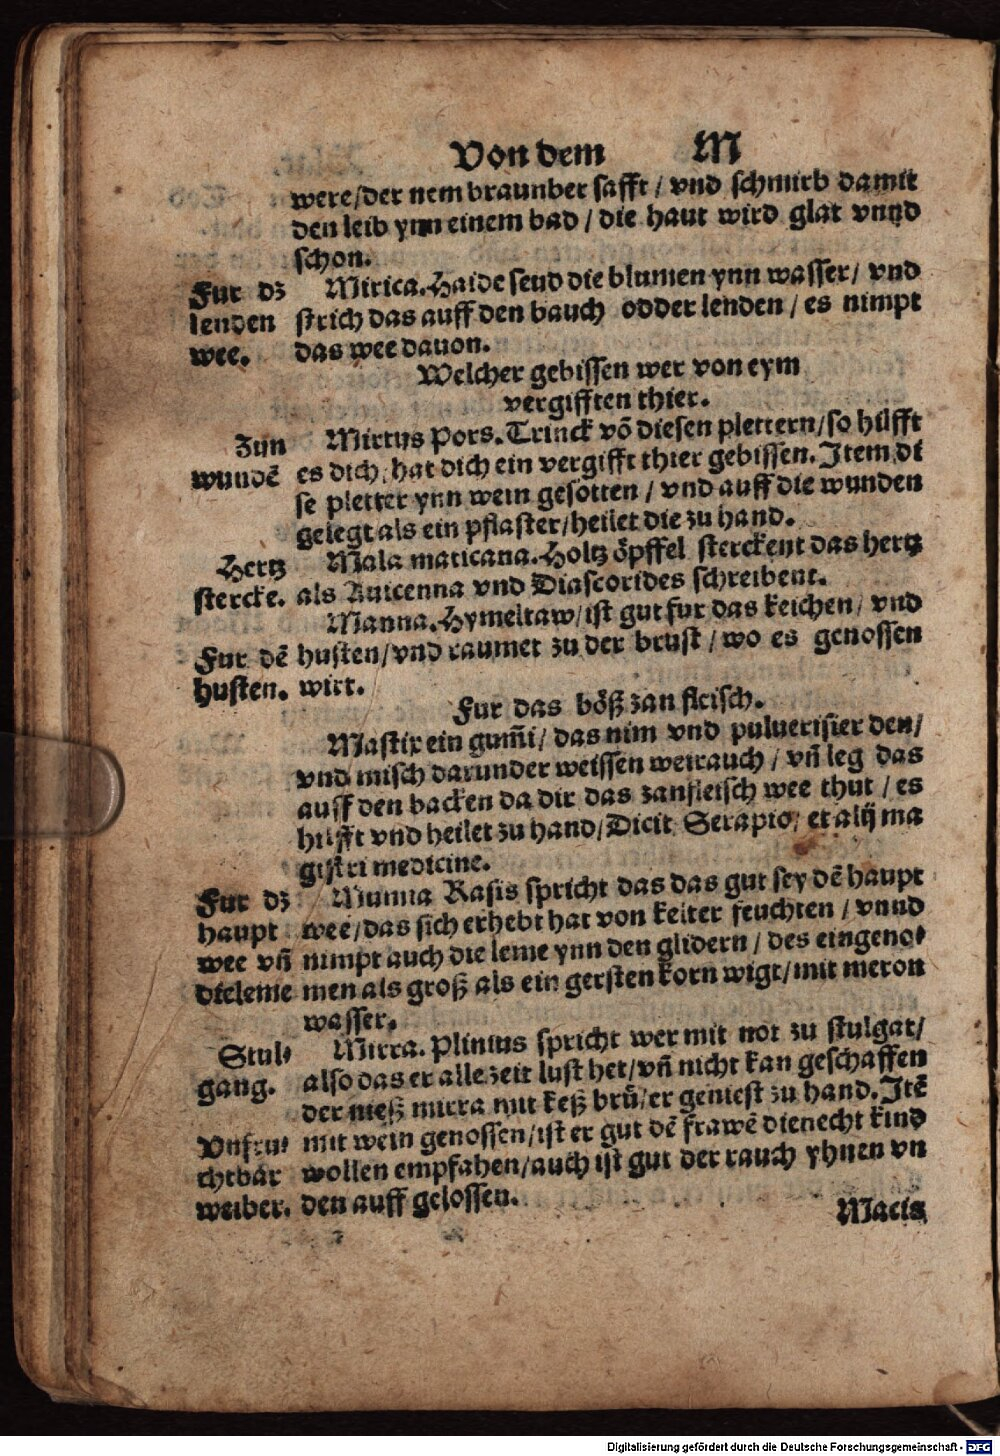 Von dem M
were/der nem braunber safft / vnd schmirb damit
den leib ynn einem bad / die haut wird glat vnnd
schon.
Fur dz
lenden
wee.
Mirica. Haide seud die blumen ynn wasser/ vnd
strich das auff den bauch odder lenden / es nimpt
das wee dauon.
Welcher gebissen wer von eym
vergifften thier.
Zun
wundē
Mirtus Pors. Trinck võ diesen plettern/so hilfft
es dich, hat dich ein vergifft thier gebissen. Item di
se pletter ynn wein gesotten / vnd auff die wunden
gelegt als ein pflaster/heilet die zu hand.
Hertz
stercke.
Mala maticana. Holtz öpffel sterckent das hertz
als Auicenna vnd Diascorides schreibent.
Manna. Hymeltaw/ist gut fur das keichen/ vnd
Fur dē
husten.
husten/vnd raumet zu der brust / wo es genossen
wirt.
Fur das böß zan fleisch.
Mastix ein gum̄i/ das nim vnd puluerisier den/
vnd misch darunder weissen weirauch / vn̄ leg das
auff den backen da dir das zanfleisch wee thut / es
hilfft vnd heilet zu hand/Dicit Serapio, et alij ma
gistri medicine.
Fur dz
haupt
wee vn̄
dieleme
Munna Rasis spricht das das gut sey dē haupt
wee/das sich erhebt hat von kelter feuchten / vnnd
nimpt auch die leme ynn den glidern / des eingeno⸗
men als groß als ein gersten korn wigt/mit meron
wasser.
Stul⸗
gang.
Mirra. Plinius spricht wer mit not zu stulgat/
also das er alle zeit lust het/vn̄ nicht kan geschaffen
der nieß mirra mit keß brü/er geniest zu hand. Itē
Vnfru⸗
chtbar
weiber.
mit wein genossen/ist er gut dē frawē die necht kind
wollen empfahen/auch ist gut der rauch yhnen vn
den auff gelossen.
Macis
Digitalisierung gefördert durch die Deutsche Forschungsgemeinschaft - DFG